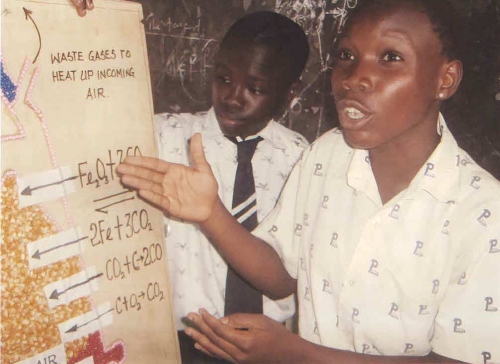 WASTE GASES TO
HEAT UP INCOMING
AIR.
Fe₂O₃+3CO
2Fe+3CO₂
CO₂+C→2CO
C+O₂→CO₂
AIR